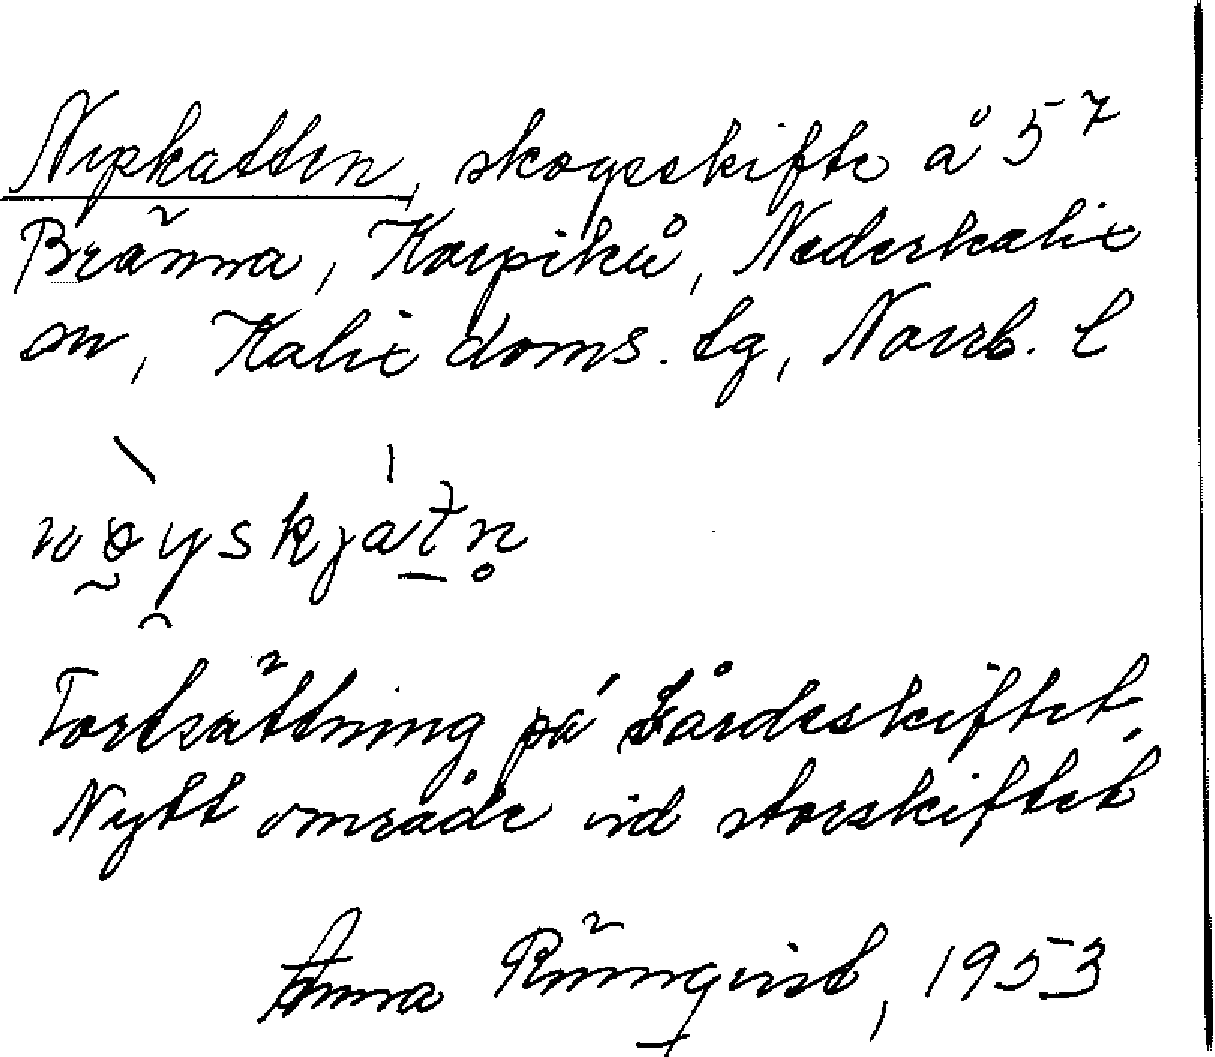 Nipkatten, skogsskifte å 5⁷
Bränna, Karpikå, Nederkalix
sn, Kalix doms. lg, Norrb. l
Fortsättning på Gårdeskiftet.
Nytt område vid storskiftet
Anna Rönnqvist, 1953